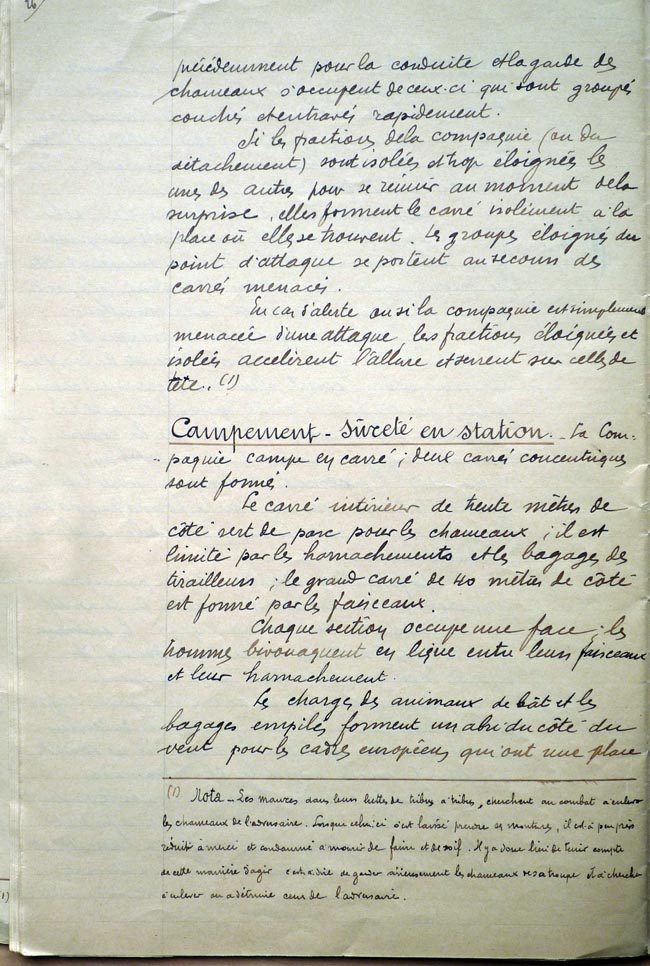 26
précédemment pour la conduite et la garde des
chameaux s'occupent de ceux-ci qui sont groupés
couchés et entravés rapidement.
Si les fractions de la compagnie (ou du
détachement) sont isolées et trop éloignées les
unes des autres pour se réunir au moment de la
surprise, elles forment le carré isolément à la
place où elles se trouvent. Les groupes éloignés du
point d'attaque se portent au secours des
carrés menacés.
En cas d'alerte ou si la compagnie est simplement
menacée d'une attaque, les fractions éloignées et
isolées accelèrent l'allure et serrent sur celles de
tête. (1)
Campement - Sûreté en station. - La Com-
pagnie campe en carré ; deux carrés concentriques
sont formés.
Le carré intérieur de trente mètres de
côté sert de parc pour les chameaux ; il est
limité par les harnachements et les bagages des
tirailleurs ; le grand carré de 40 mètres de côté
est formé par les faisceaux.
Chaque section occupe une face ; les
hommes bivouaquent en ligne entre leurs faisceaux
et leur harnachement.
Les charges des animaux de bât et les
bagages empilés forment un abri du côté du
vent pour les cadres européens qui ont une place
(1) Nota - Les maures dans leurs luttes de tribus à tribus, cherchent au combat à enlever
les chameaux de l'adversaire. Lorsque celui-ci s'est laissé prendre ses montures, il est à peu près
réduit à merci et condamné à mourir de faim et de soif. Il y a donc lieu de tenir compte
de cette manière d'agir c'est à dire de garder sérieusement les chameaux de sa troupe et à chercher
à enlever ou à détruire ceux de l'adversaire.
1)